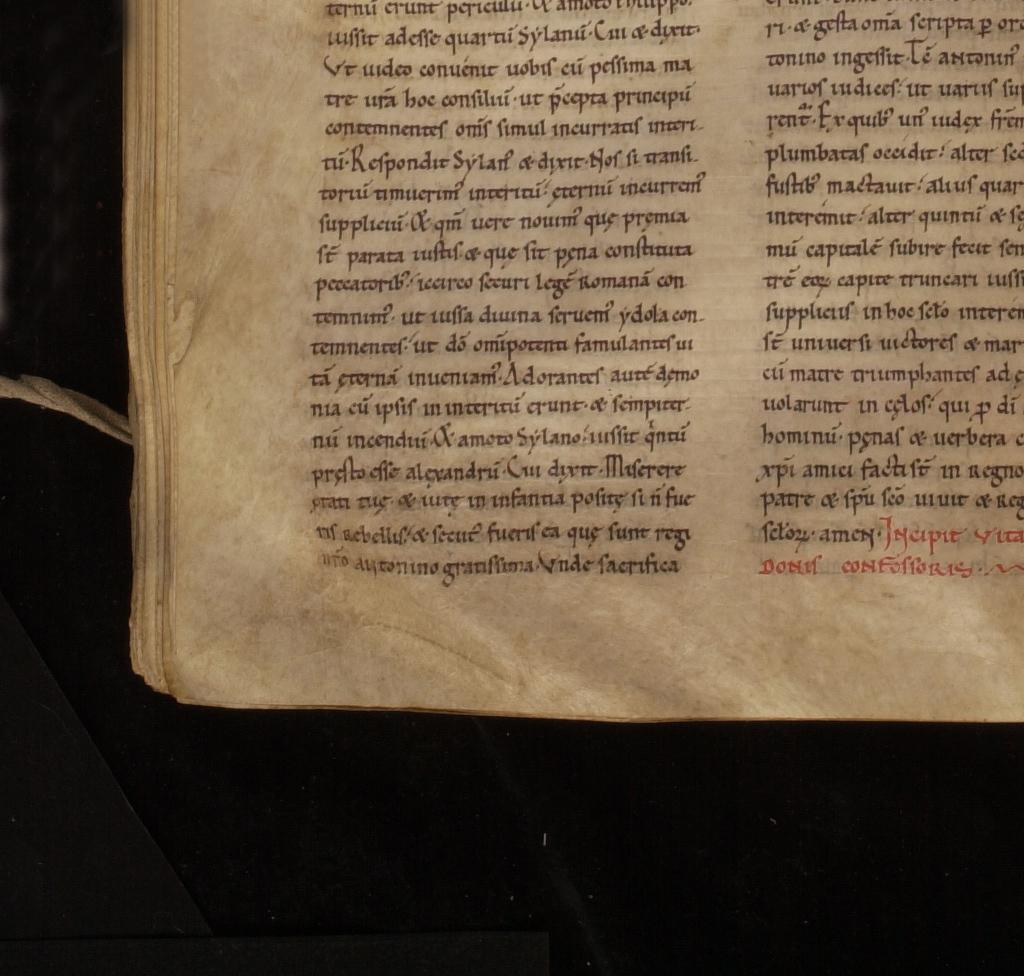 ternū erunt periculū. & amoto Philippo.
iussit adesse quartū Sylanū. Cui & dixit.
Vt uideo conuenit uobis cū pessima ma
tre urā hoc consiliū. ut p̄cepta principū
contemnentes om̄s simul incurratis interi-
tū. Respondit Sylan᷒ & dixit. Nos si transi-
toriū timuerim᷒ interitū. ęternū incurrem᷒
suppliciū. & qm̄ uere nouim᷒ quę premia
st̄ parata iustis. & que sit pęna constituta
peccatorib᷒. iccirco securi legē Romanā con
temnim᷒. ut iussa diuina seruem᷒ ydola con-
temnentes. ut dō om̄ipotenti famulantes ui
tā ęternā inueniam᷒. Adorantes autē dęmo
nia cū ipsis in interitū erunt. & sempiter-
nū incendiū. & amoto Sylano. iussit q̇ntū
pręsto esse alęxandrū. Cui dixit. Miserere
ętati tuę. & uitę in infantia positę si n̄ fue
ris Rebellis. & secut᷒ fueris ea quę sunt regi
nr̄o antonino gratissima. Vnde sacrifica
ri. & gesta om̄ia scripta ꝑ ord
tonino ingessit. Tē antonin᷒
uarios iudices. ut uariis sup
rent᷑. Ex quib᷒ un᷒ iudex fr̄em
plumbatas occidit. alter sec
fustib᷒ mactauit. alius quar
interemit. alter quintū & se
mū capitalē subire fecit sen
trē eoꝝ capite truncari iussi
suppliciis in hoc sc̄lo interem
st̄ uniuersi uictores & mar
cū matre triumphantes ad ę
uolarunt in cęlos. qui ꝑ dī
hominū pęnas & uerbera c
xp̄i amici facti st̄ in Regno
patre & sp̄u sc̄o uiuit & Reg
sc̄loꝝ. amen. Incipit Vita
DONIS CONFESSORIS.